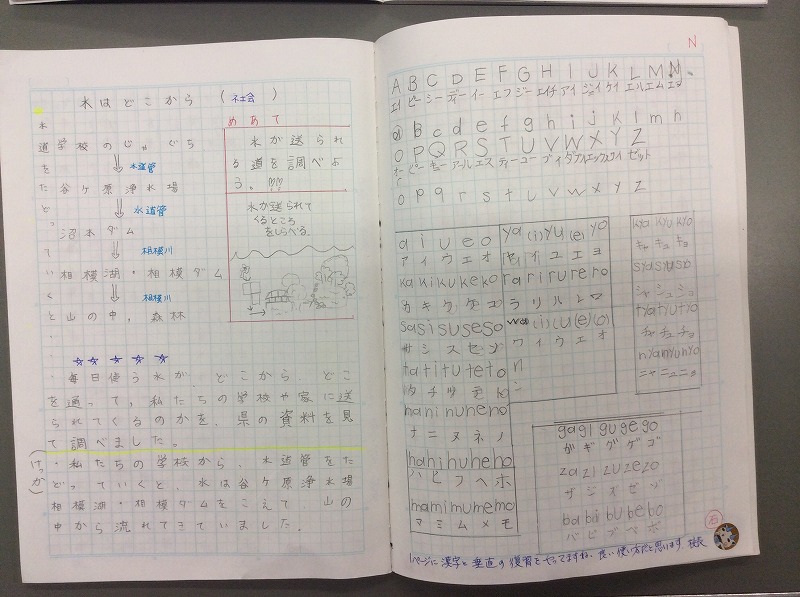 水はどこから （社会）
水道学校のじゃぐち
水道管
谷ケ原浄水場
水道管
沼本ダム
相模川
相模湖・相模ダム
相模川
山の中，森林
をたどっていくと
めあて
水が送られ
る道を調べよ
う。
水が送られて
くるところ
をしらべる。
毎日使う水が、どこから、どこ
を通って，私たちの学校や家に送
られてくるのかを，県の資料を見
て調べました。
(けっか)
・私たちの学校から，水道管をた
どっていくと，水は谷ケ原浄水場
相模湖・相模ダムをこえて 山の
中から流れてきていました．
N
A B C D E F G H I J K L M N
エイ ビー シー ディー イー エフ ジー エイチ アイ ジェイ ケイ エル エム エヌ
a b c d e f g h i j k l m n
O P Q R S T U V W X Y Z
オー ピー キュー アール エス ティー ユー ブイ ダブル エックス ワイ ゼット
o p q r s t u v w x y z
a i u e o
アイウエオ
ka ki ku ke ko
カキクケコ
sa si su se so
サシスセソ
ta ti tu te to
タチツテト
na ni nu ne no
ナニヌネノ
ha ni hu he ho
ハヒフヘホ
ma mi mu me mo
マミムメモ
ya (i) yu (e) yo
ヤイユエヨ
ra ri ru re ro
ラリルレロ
wa (i) (u) (e) (o)
ワイウエオ
n
ン
kya kyu kyo
キャ キュ キョ
sya syu syo
シャ シュ ショ
tya tyu tyo
チャ チュ チョ
nya nyu nyo
ニャ ニュ ニョ
ga gi gu ge go
ガギグゲゴ
za zi zu ze zo
ザジズゼゾ
ba bi bu be bo
バビブベボ
1ページに漢字と垂直の復習をやってますね．良い使い方だと思います 校長